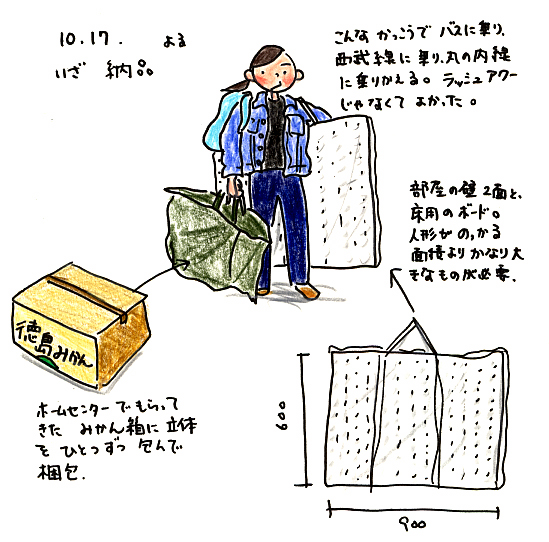 10.17. よる
いざ 納品
こんな かっこうで バスに乗り、
西武線に乗り、丸の内線
に乗りかえる。ラッシュアワー
じゃなくて よかった。
部屋の壁2面と、
床用のボード。
人形が のっかる
面積よりかなり大
きなものが必要。
徳島みかん
ホームセンターでもらって
きた みかん箱に 立体
を ひとつずつ 包んで
梱包.
600
900